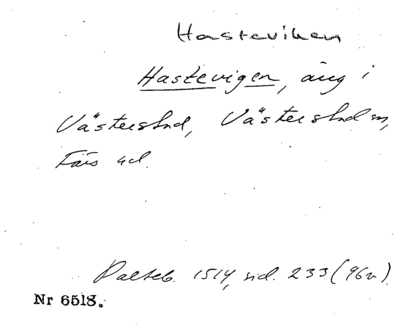 Hasteviken
Hastevigen, äng i
Västerstad, Västerstad sn,
Färs hd.
Palteb. 1514, sid. 233 (96v).
Nr 6518.